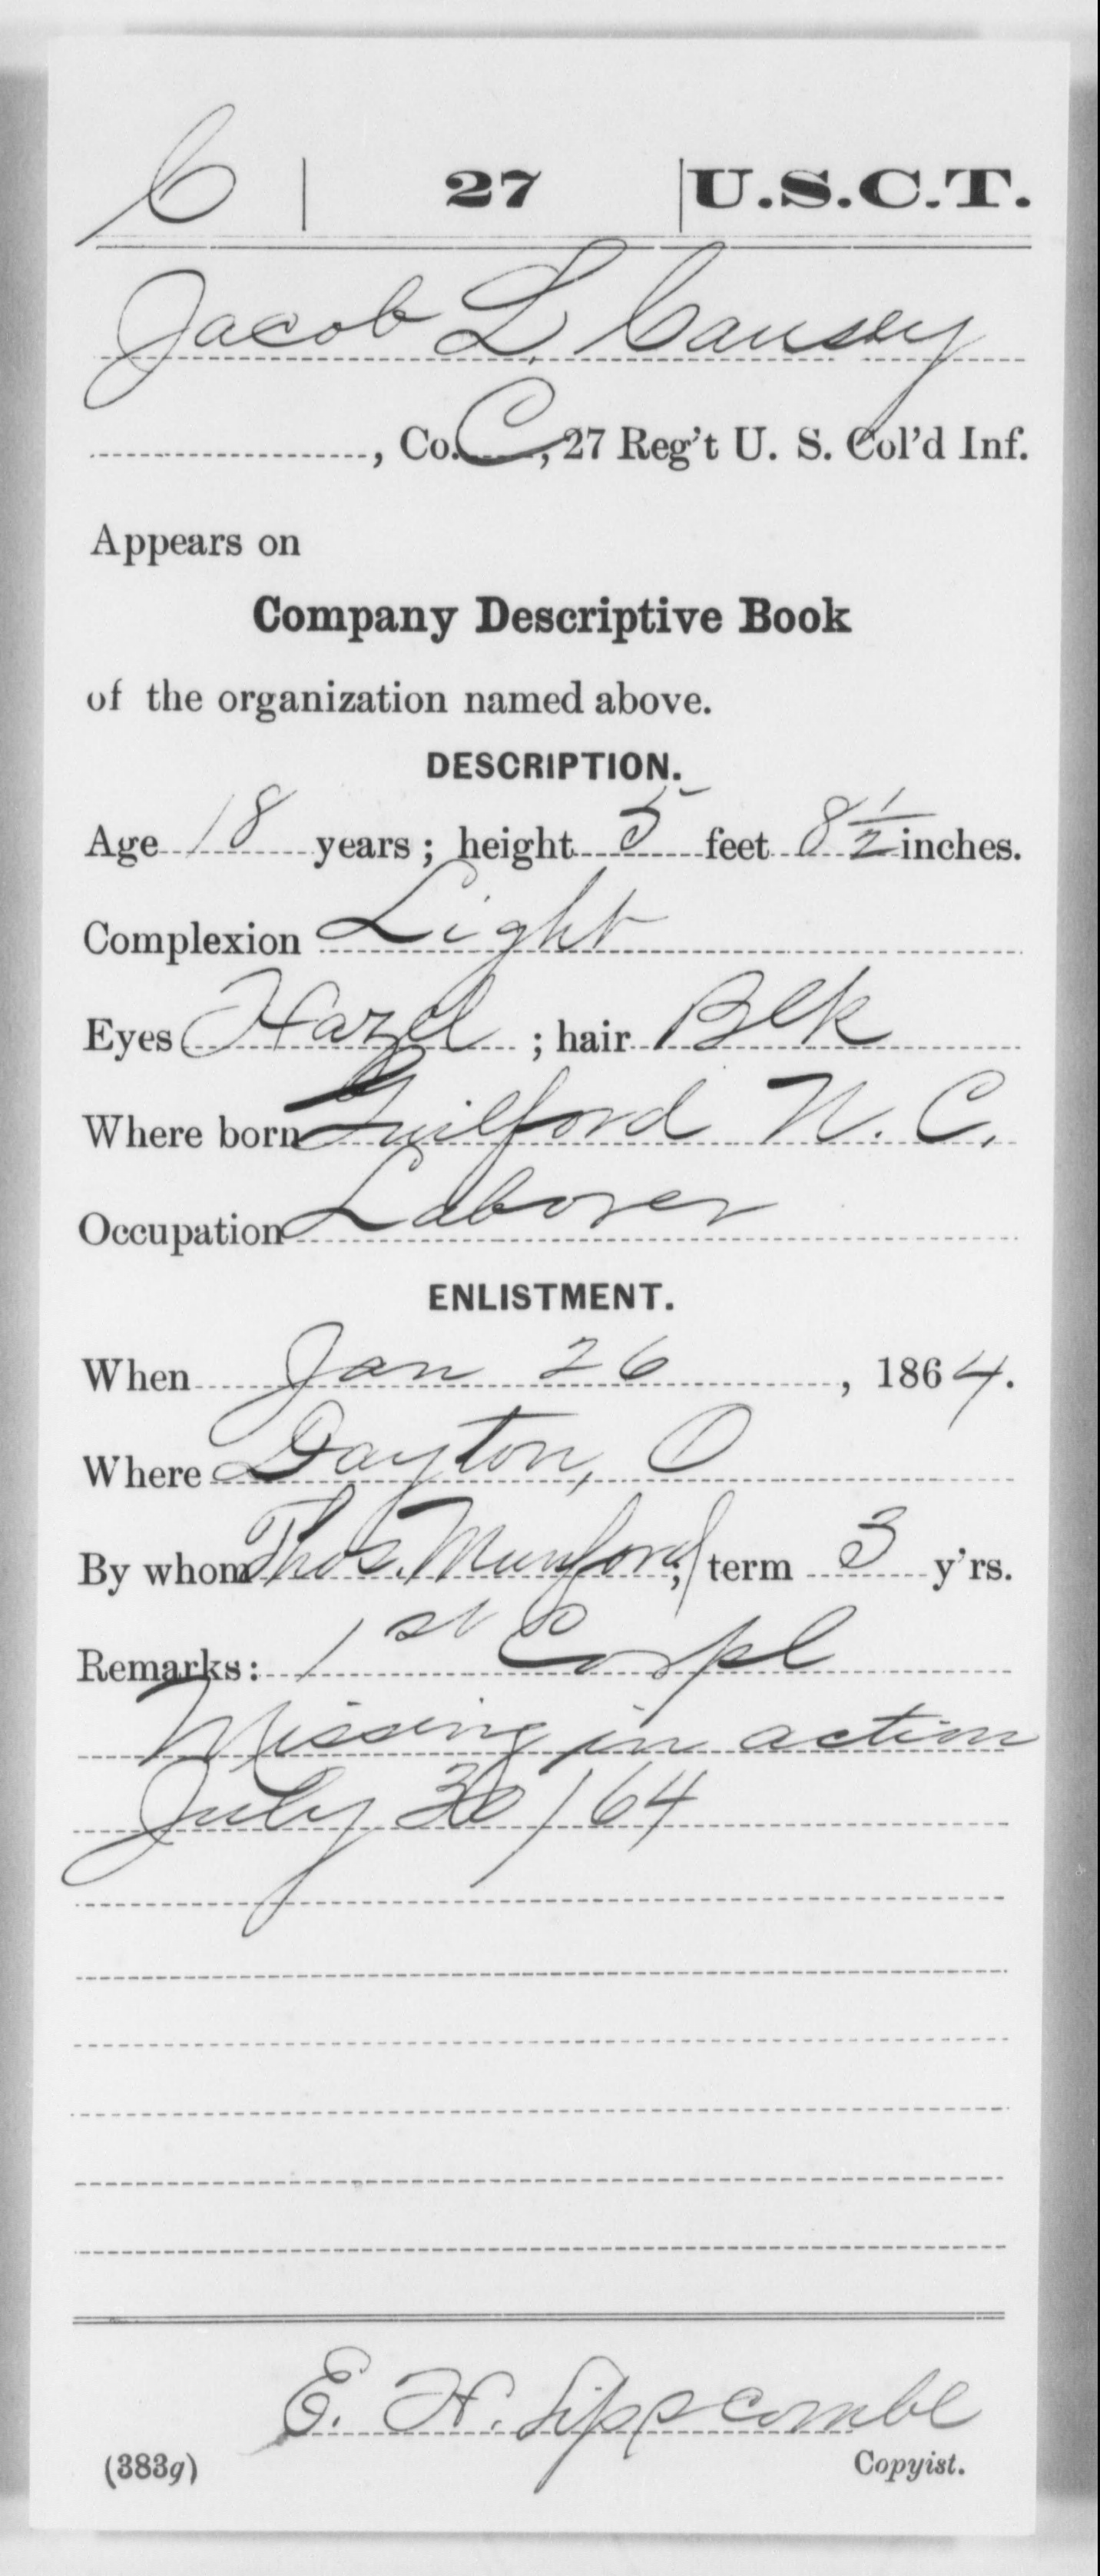 C | 27 | U.S.C.T.
Jacob L. Causey
, Co. C, 27 Reg't U. S. Col'd Inf.
Appears on
Company Descriptive Book
of the organization named above.
DESCRIPTION.
Age 18 years; height 5 feet 8 1/2 inches.
Complexion Light
Eyes Hazel ; hair Blk
Where born Guilford N. C.
Occupation Laborer
ENLISTMENT.
When Jan 26 , 1864.
Where Dayton, O
By whom Thos. Munford; term 3 y'rs.
Remarks: 1st Corpl
Missing in action
July 30/64
E. H. Lippscombe
(383g) Copyist.